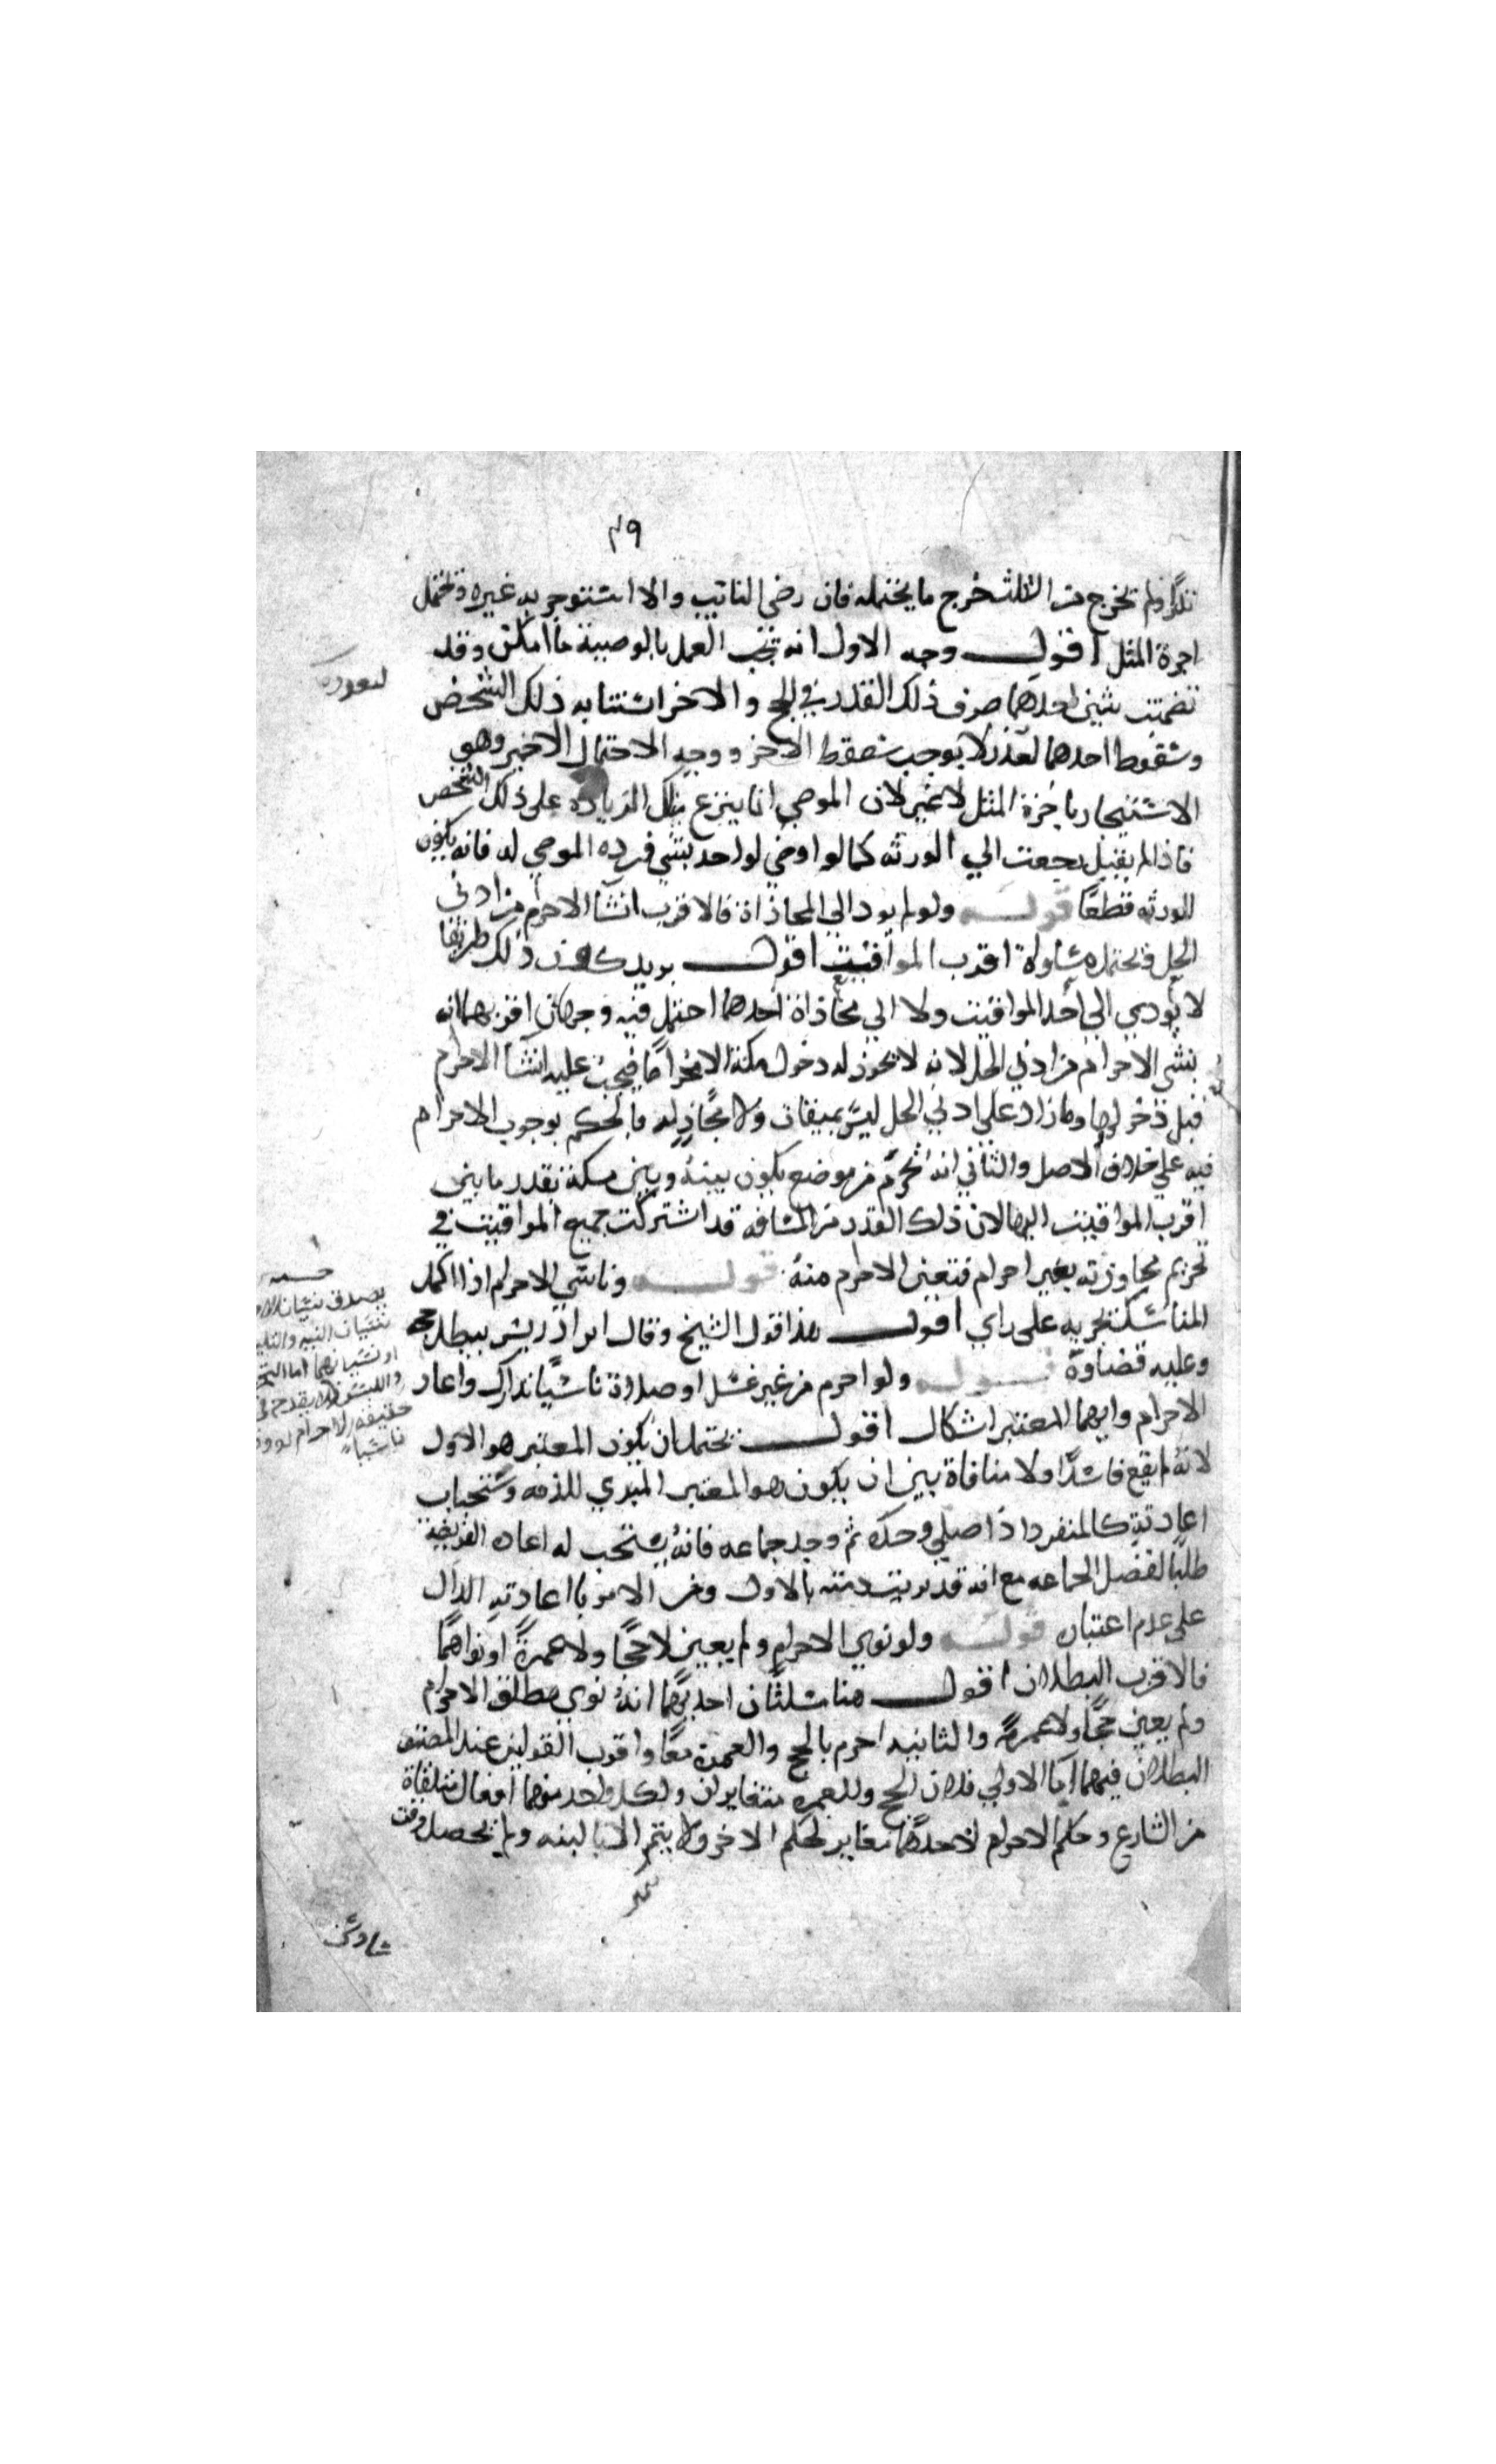 ٤٩
ولم يخرج من الثلث خرج ما يحتمله فان رضي النائب والا استؤجر به غيره ويحتمل
اجرة المثل اقول وجه الاول انه يجب العمل بالوصية ما امكن وقد
تضمنت شيئين احدهما صرف ذلك القدر في الحج والاخر استنابه ذلك الشخص
وسقوط احدهما لعذر لا يوجب سقوط الاخر ووجه الاحتمال الاخير وهو
الاستيجار باجرة المثل لا غير لان الموصي انما يتبرع بتلك الزيادة على ذلك الشخص
فاذا لم يقبل رجعت الي الورثه كما لو اوصي لواحد بشي فرده الموصي له فانه يكون
للورثه قطعا قوله ولو لم يود الي المحاذاة فالاقرب انشا الاحرام من ادني
الحل ويحتمل مساواة اقرب المواقيت اقول يريد كون ذلك طريقا
لا يودي الي احد المواقيت ولا الي محاذاة احدهما احتمل فيه وجهان اقربهما انه
ينشي الاحرام من ادني الحل لانه لا يجوز له دخول مكة الا محرما فيجب عليه انشا الاحرام
قبل دخولها وما زاد علي ادني الحل ليس بميقات ولا محاذ له فالحكم بوجوب الاحرام
فيه علي خلاف الاصل والثاني انه يحرم من موضع يكون بينه وبين مكة بقدر ما بين
اقرب المواقيت اليها لان ذلك القدر من المسافه قد اشتركت جميع المواقيت في
تحريم مجاوزته بغير احرام فتعين الاحرام منه قوله وناسي الاحرام اذا اكمل
المناسك يجزيه على راي اقول هذا قول الشيخ وقال ابن ادريس يبطل حجه
وعليه قضاوه قوله ولو احرم من غير غسل او صلاة ناسيا تدارك واعاد
الاحرام وايهما المعتبر اشكال اقول يحتمل ان يكون المعتبر هو الاول
لانه لم يقع فاسدا ولا منافاة بين ان يكون هو المعتبر المبري للذمه وستحباب
اعادته كالمنفرد اذا صلي وحده ثم وجد جماعه فانه يستحب له اعاده الفريضه
طلبا لفضل الجماعه مع انه قد بريت ذمته بالاول ومن الامر باعادته الدال
على عدم اعتباره قوله ولو نوي الاحرام ولم يعين لا حجا ولا عمرة او نواهما
فالاقرب البطلان اقول هنا مسلتان احديهما انه نوي مطلق الاحرام
ولم يعين حجا ولا عمرة والثانيه احرم بالحج والعمرة معا واقرب القولين عند المصنف
البطلان فيهما اما الاولي فلان الحج والعمره متغايران ولكل واحد منهما افعال متلقاة
من الشارع وحكم الاحرام لاحدهما مغاير لحكم الاخر ولا يتميز الا بالنيه ولم يحصل وقت
يصدق نسيان الا
نسيان النيه والتلبيه
او نسيانهما اما
حقيقه الاحرام
ناسيا